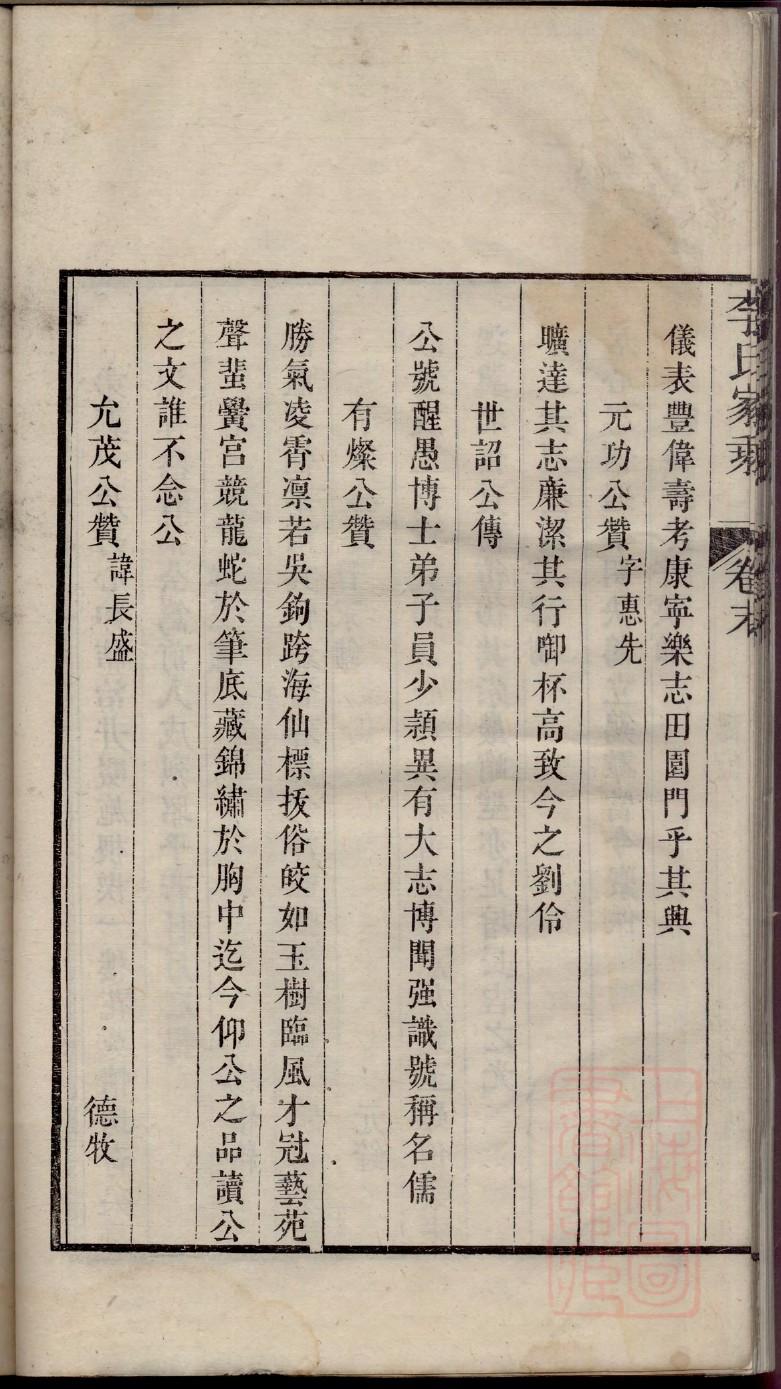 李氏家乘 卷末
儀表豐偉壽考康寧樂志田園門乎其興
元功公贊字惠先
曠達其志廉潔其行啣杯高致今之劉伶
世詔公傳
公號醒愚博士弟子員少穎異有大志博聞强識號稱名儒
有燦公贊
勝氣凌霄凛若吳鉤跨海仙標拔俗皎如玉樹臨風才冠藝苑
聲蜚黌宫競龍蛇於筆底藏錦繡於胸中迄今仰公之品讀公
之文誰不念公
允茂公贊諱長盛 德牧